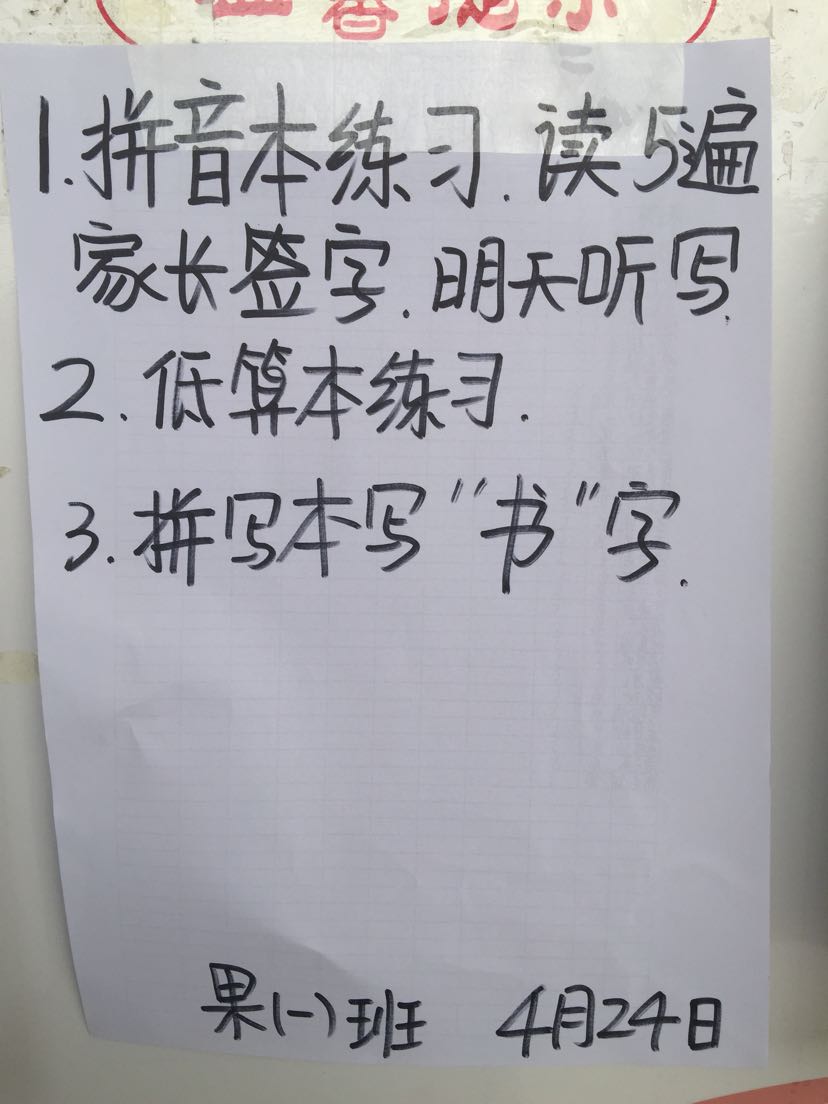 温馨提示
1.拼音本练习.读5遍
家长签字.明天听写.
2.低算本练习.
3.拼写本写“书”字.
果(一)班 4月24日